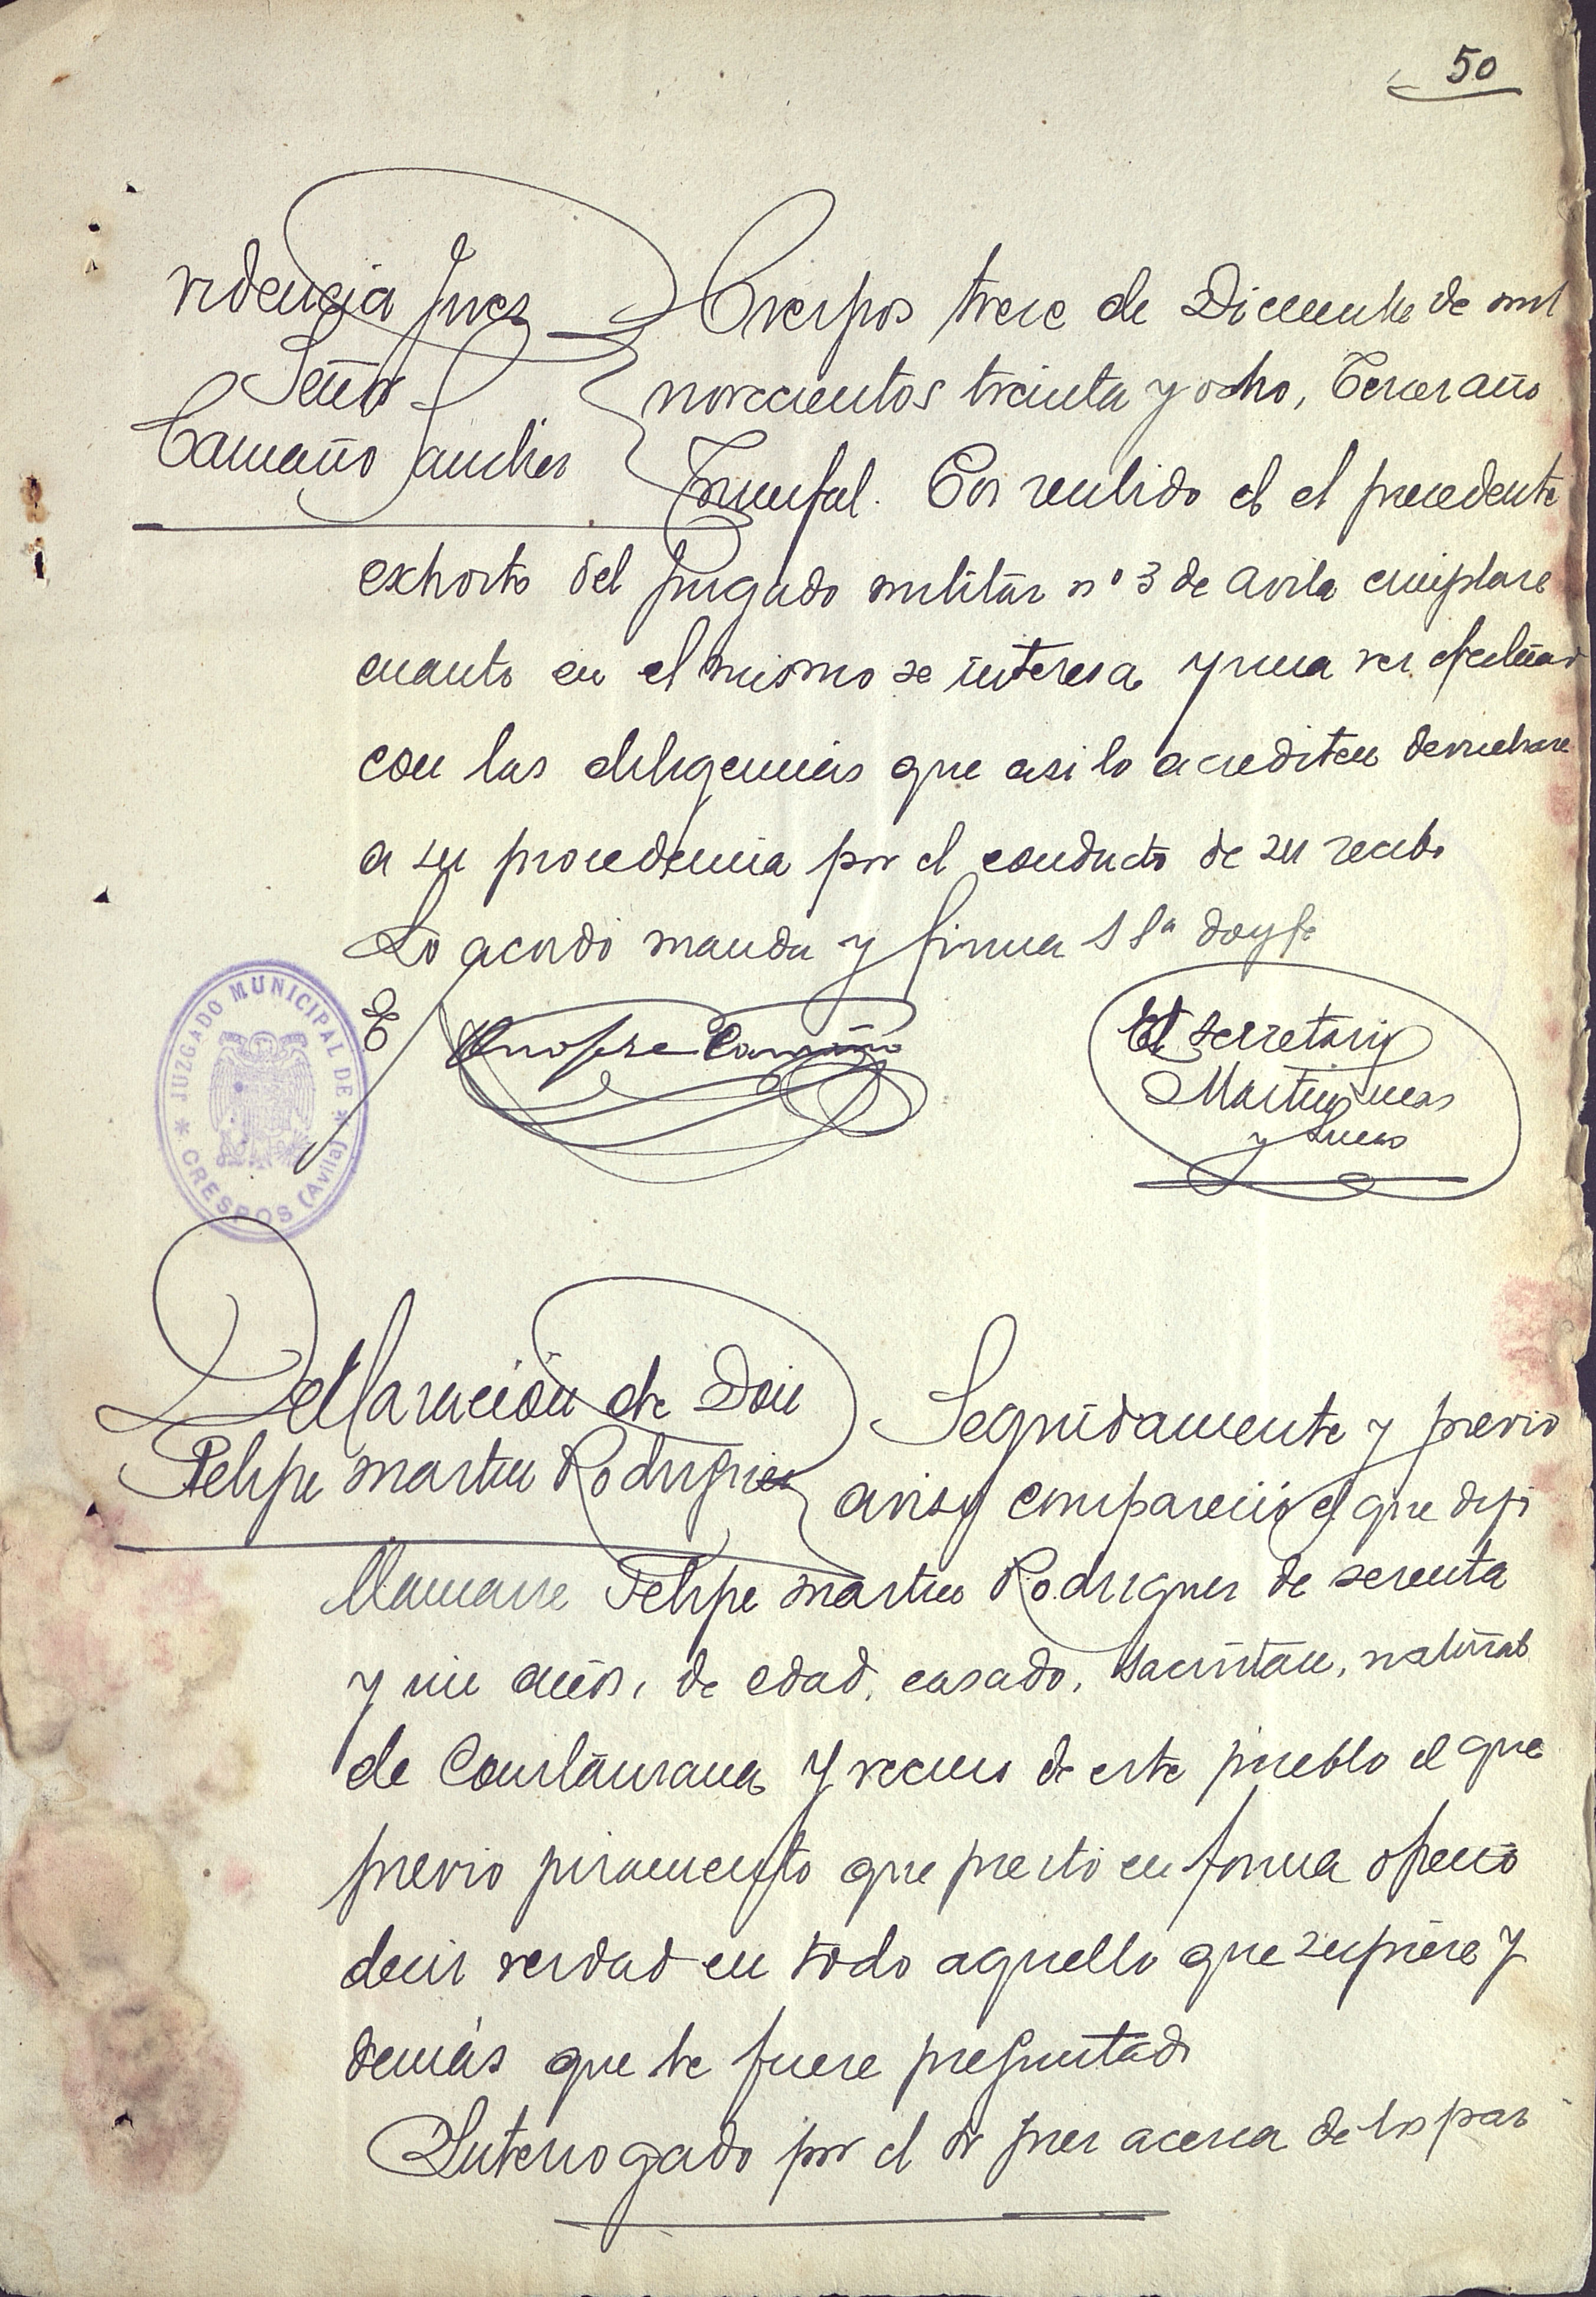 50
Providencia Juez
Señor
Camaño Sanchez
Crespos trece de Diciembre de mil
novecientos treinta y ocho, Tercer año
Triunfal. Por recibido el el precedente
exhorto del Juzgado militar nº 3 de Avila cumplase
cuanto en el mismo se interesa y una vez efectuad
con las diligencias que asi lo acrediten devuelvase
a su procedencia por el conducto de su recibo
Lo acordo manda y firma S Sª doy fe
E
Onofre Camaño
El secretario
Martin
y
JUZGADO MUNICIPAL DE
CRESPOS (Avila)
Declaración de Don
Felipe Martin Rodriguez
Seguidamente y previo
aviso compareció el que dijo
llamarse Felipe Martin Rodriguez de sesenta
y un años, de edad, casado, sacristan, natural
de Constanzana y vecino de este pueblo el que
previo juramento que prestó en forma ofreció
decir verdad en todo aquello que supiere y
demás que le fuere preguntado
Interrogado por el Sr Juez acerca de los par